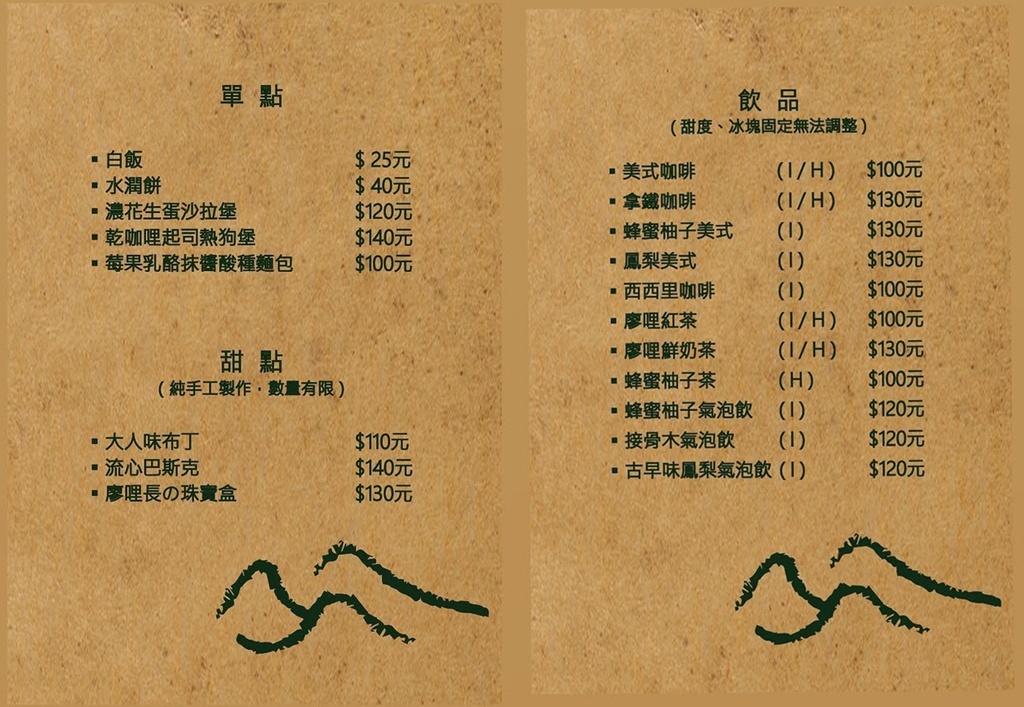 單 點
▪ 白飯 $ 25元
▪ 水潤餅 $ 40元
▪ 濃花生蛋沙拉堡 $120元
▪ 乾咖哩起司熱狗堡 $140元
▪ 莓果乳酪抹醬酸種麵包 $100元
甜 點
(純手工製作·數量有限)
▪ 大人味布丁 $110元
▪ 流心巴斯克 $140元
▪ 廖哩長の珠寶盒 $130元
飲 品
(甜度、冰塊固定無法調整)
▪ 美式咖啡 (I/H) $100元
▪ 拿鐵咖啡 (I/H) $130元
▪ 蜂蜜柚子美式 (I) $130元
▪ 鳳梨美式 (I) $130元
▪ 西西里咖啡 (I) $100元
▪ 廖哩紅茶 (I/H) $100元
▪ 廖哩鮮奶茶 (I/H) $130元
▪ 蜂蜜柚子茶 (H) $100元
▪ 蜂蜜柚子氣泡飲 (I) $120元
▪ 接骨木氣泡飲 (I) $120元
▪ 古早味鳳梨氣泡飲 (I) $120元